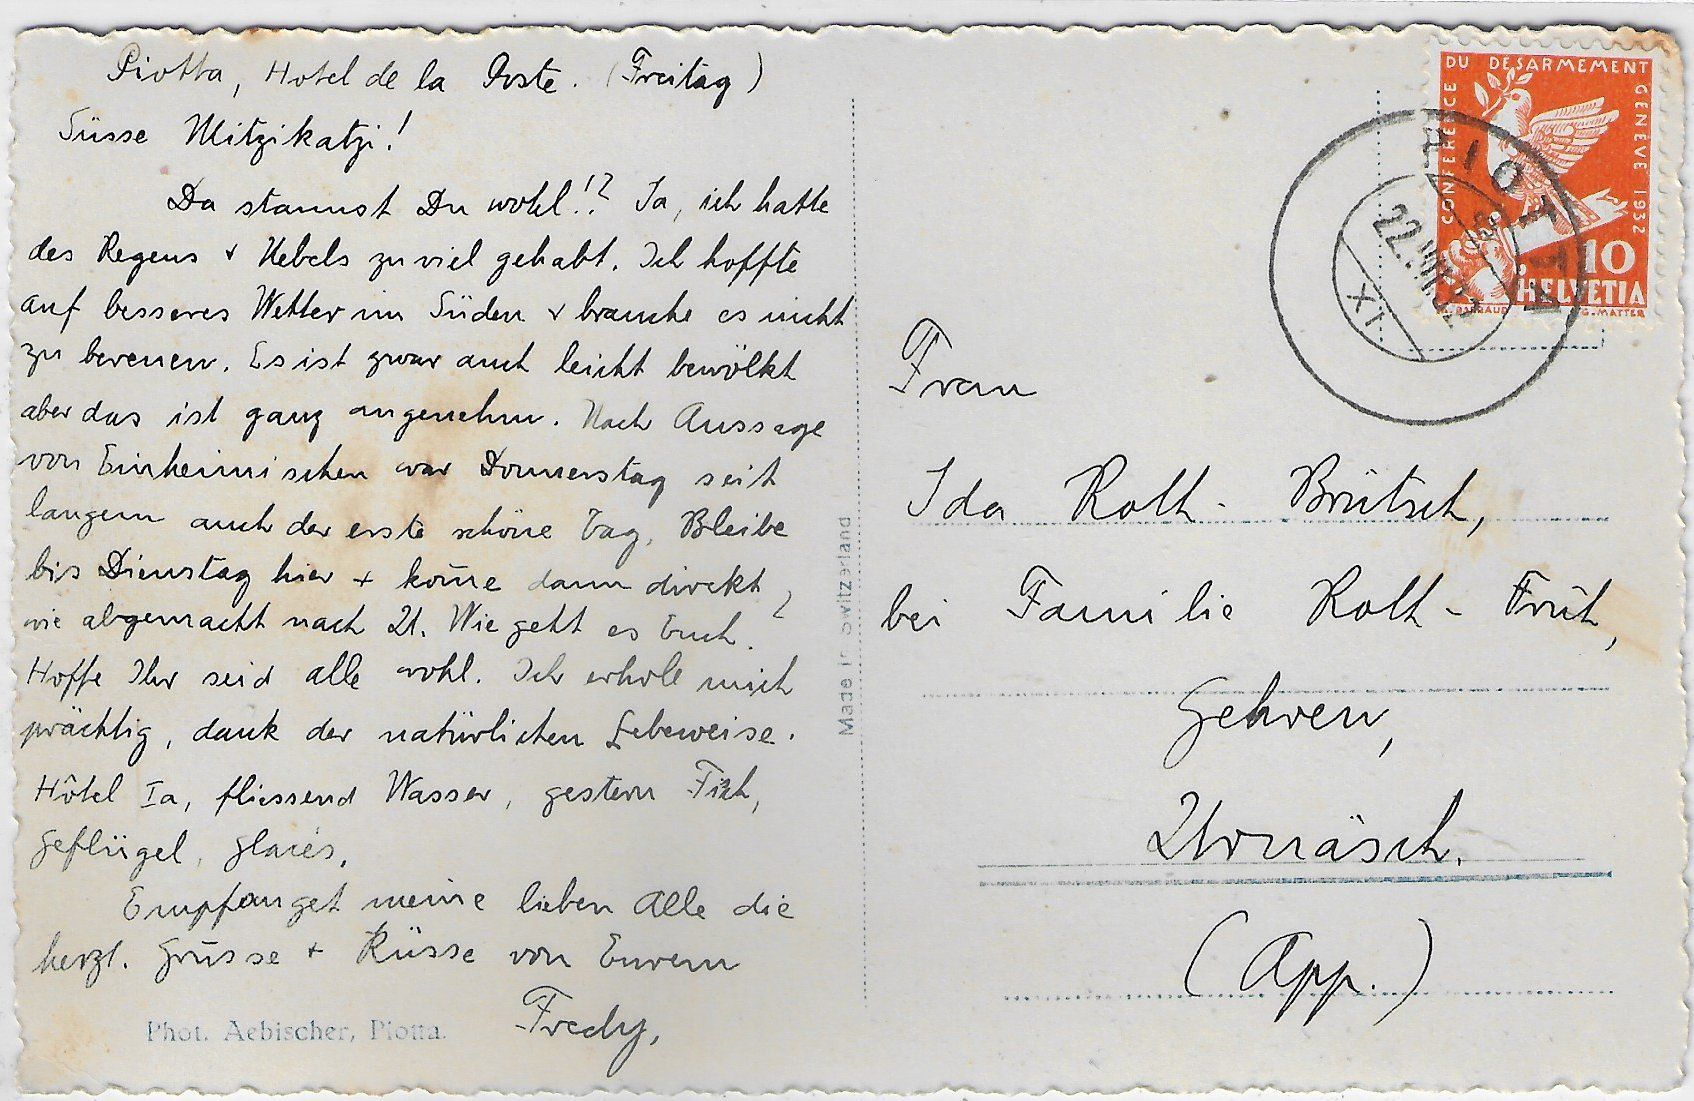 Piotta, Hotel de la Poste. (Freitag)
Süsse Mitzikatzi!
Da staunst Du wohl!? Ja, ich hatte
des Regens + Nebels zuviel gehabt. Ich hoffte
auf besseres Wetter im Süden + brauche es nicht
zu bereuen. Es ist zwar auch leicht bewölkt
aber das ist ganz angenehm. Nach Aussage
von Einheimischen war Donnerstag seit
langem auch der erste schöne Tag. Bleibe
bis Dienstag hier + kom̄e dann direkt,
wie abgemacht nach U. Wie geht es Euch?
Hoffe Ihr seid alle wohl. Ich erhole mich
prächtig, dank der natürlichen Lebeweise.
Hôtel Ia, fliessend Wasser, gestern Fisch,
Geflügel, Glacés.
Empfanget meine lieben Alle die
herzl. Grüsse + Küsse von Eurem
Fredy.
Phot. Aebischer, Piotta.
Made in Switzerland
CONFERENCE DU DESARMEMENT GENÈVE 1932
10
HELVETIA
G. MATTER
PIOTTA
22.VII.32
XI
Frau
Ida Roth-Brütsch,
bei Familie Roth-Früh,
Gehren,
Urnäsch.
(App.)